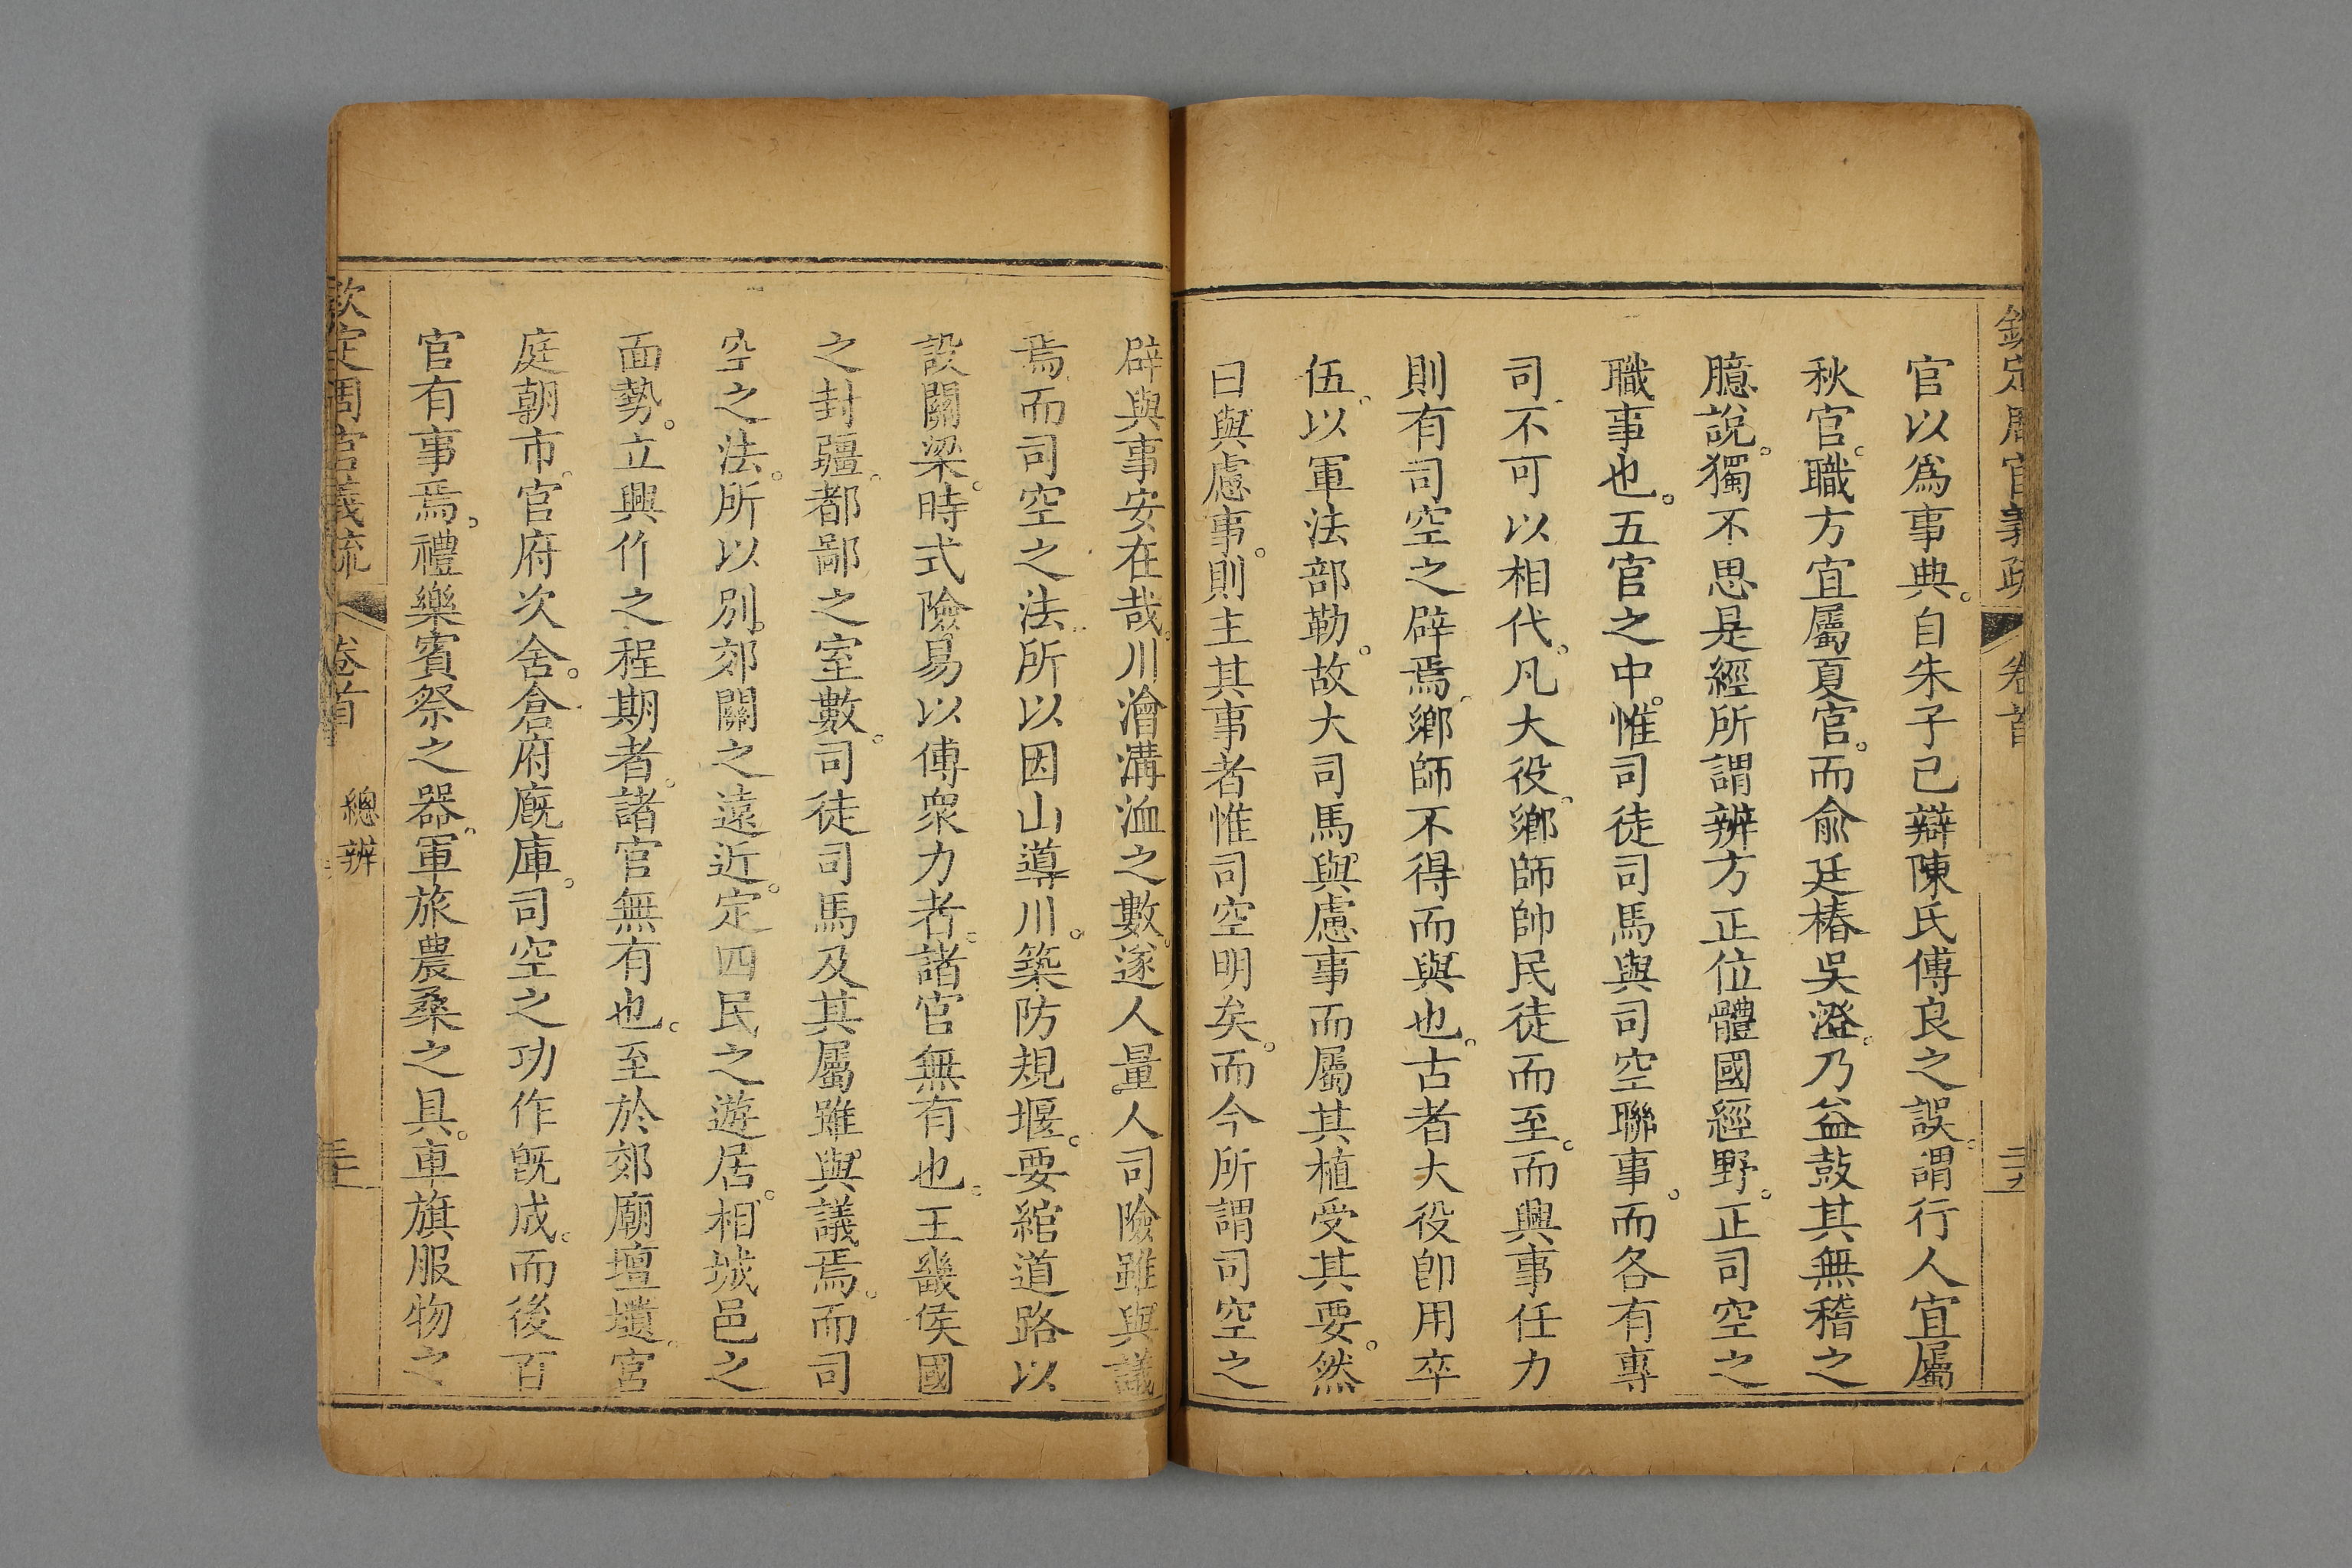 欽定周官義疏 卷首
官以爲事典。自朱子已辯陳氏傅良之誤。謂行人宜屬
秋官。職方宜屬夏官。而俞廷椿吳澄。乃益鼓其無稽之
臆說。獨不思是經所謂辨方正位體國經野。正司空之
職事也。五官之中。惟司徒司馬與司空聯事。而各有專
司。不可以相代。凡大役。鄉師帥民徒而至。而興事任力
則有司空之辟焉。鄉師不得而與也。古者大役卽用卒
伍。以軍法部勒。故大司馬與慮事而屬其植受其要。然
曰與慮事。則主其事者惟司空明矣。而今所謂司空之
辟與事安在哉。川澮溝洫之數。遂人量人司險雖與議
焉。而司空之法。所以因山導川。築防規堰。要綰道路以
設關梁。時式險易以傅衆力者。諸官無有也。王畿侯國
之封疆。都鄙之室數。司徒司馬及其屬雖與議焉。而司
空之法。所以別郊關之遠近。定四民之遊居。相城邑之
面勢。立興作之程期者。諸官無有也。至於郊廟壇壝。宮
庭朝市。官府次舍。倉府廐庫。司空之功作旣成。而後百
官有事焉。禮樂賓祭之器。軍旅農桑之具。車旗服物之
欽定周官義疏 卷首 總辨